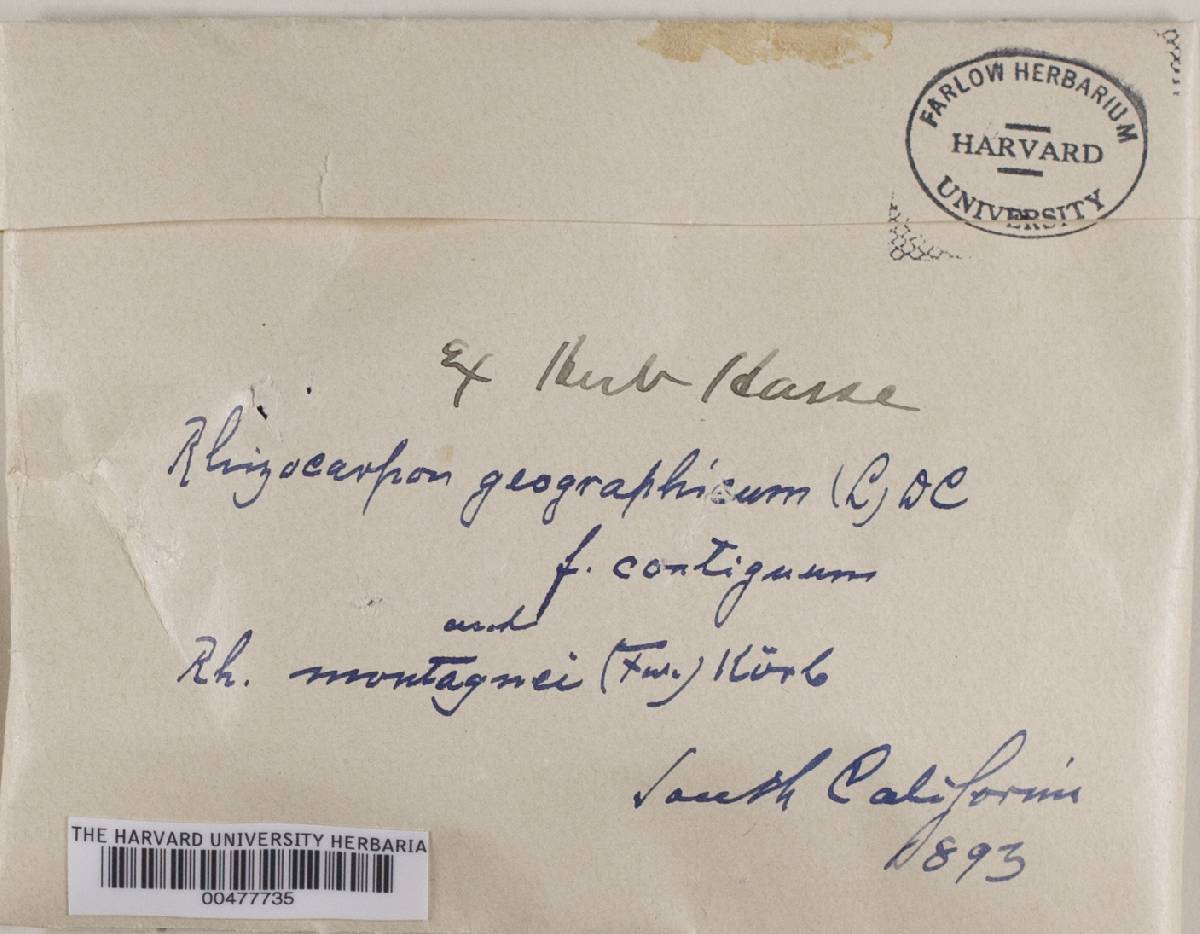 FARLOW HERBARIUM
HARVARD
UNIVERSITY
Ex Herb Hasse
Rhizocarpon geographicum (L) DC
f. contiguum
and
Rh. montagnei (Fw.) Körb
South California
1893
THE HARVARD UNIVERSITY HERBARIA
00477735